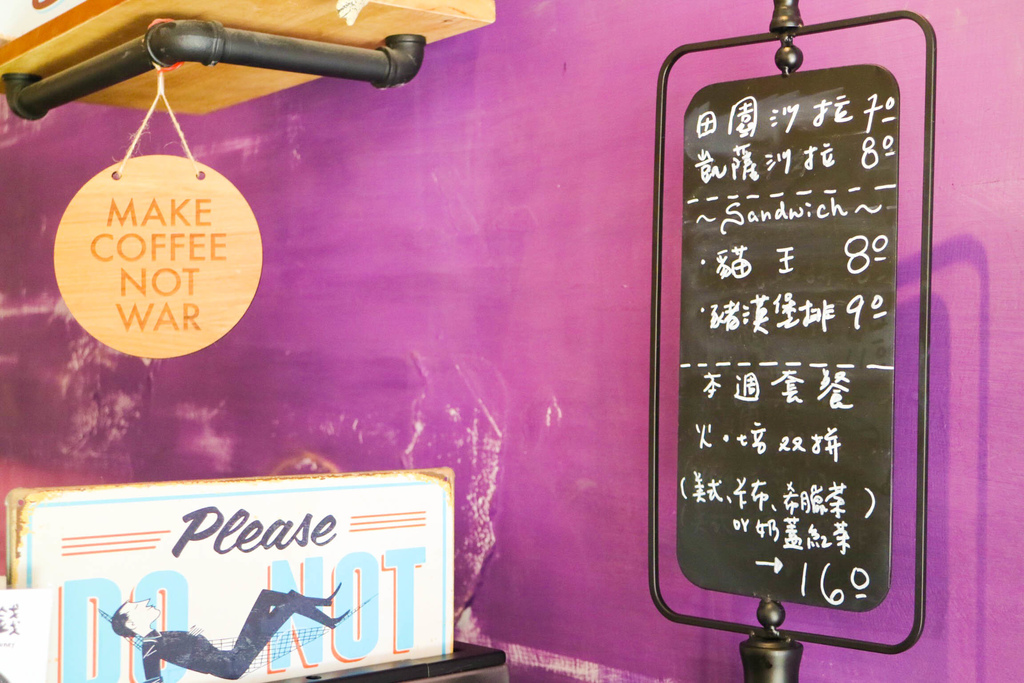 MAKE
COFFEE
NOT
WAR
Please
DO NOT
田園沙拉 70
凱薩沙拉 80
~Sandwich~
·貓王 80
·豬漢堡排 90
本週套餐
火·培双拼
(美式、卡布、希臘茶)
or奶蓋紅茶
→160